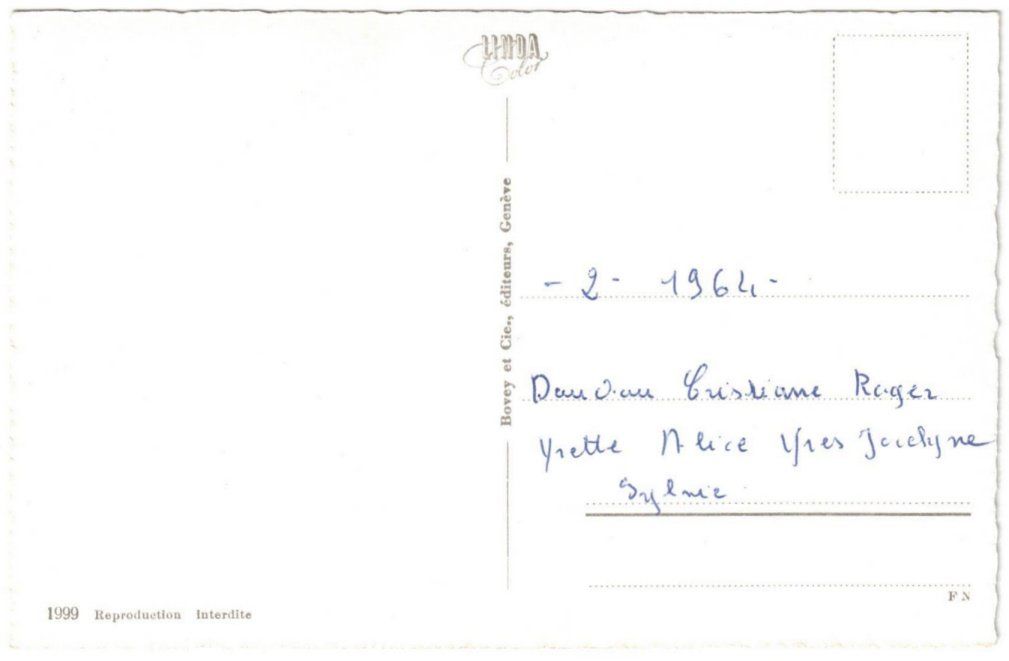 LINDA
Color
Bovey et Cie., éditeurs, Genève
- 2 - 1964 -
Cristiane Roger
Yvette Alice Yves Jocelyne
Sylvie
F N
1999 Reproduction Interdite